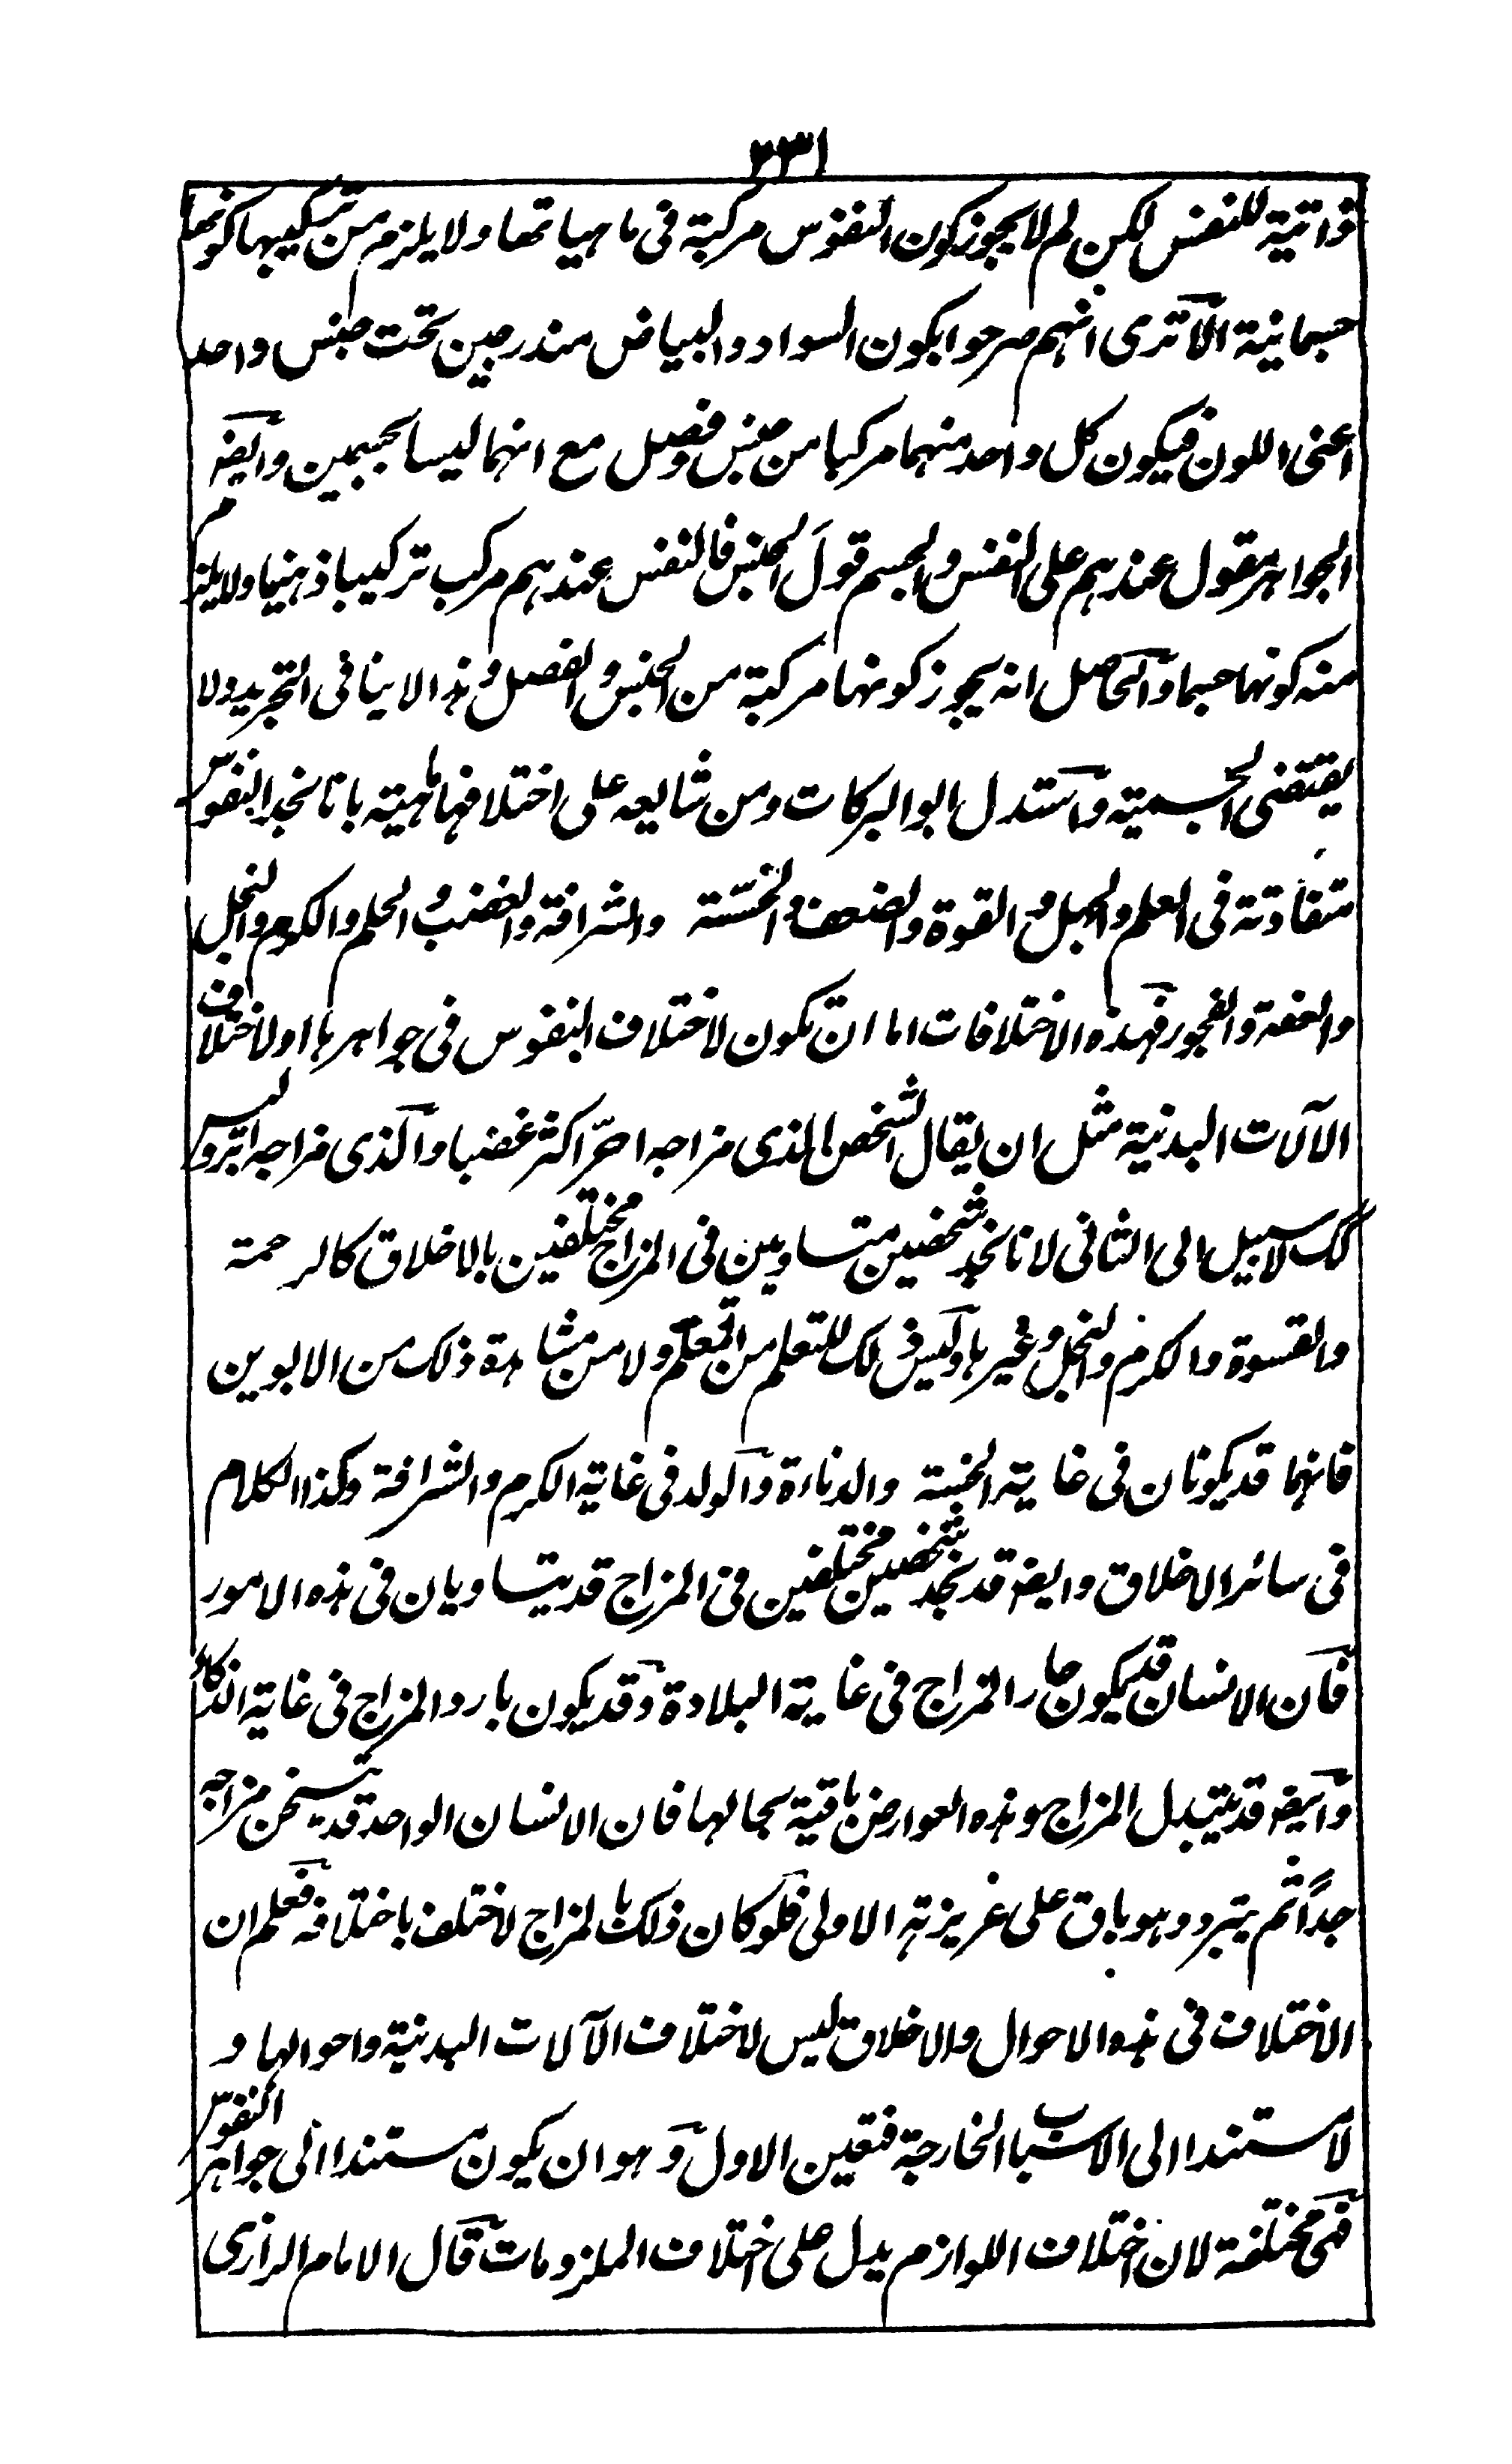 ٣٣١
ذاتية للنفس لكن لم لا يجوز كون النفوس مركبة فى ماهياتها ولا يلزم من تركيبها كونها
جسمانية الا ترى انهم صرحوا بكون السواد والبياض مندرجين تحت جنس واحد
اعنى اللون فيكون كل واحد منهما مركبا من جنس وفصل مع انهما ليسا بجسمين وايضه
الجواهر مقول عندهم على النفس والجسم قول الجنس فالنفس عندهم مركب تركيبا ذهنيا ولا يلزم
منه كونها جسما والحاصل انه يجوز كونها مركبة من الجنس والفصل وهذا لا ينافى التجريد ولا
يقتضى الجسمية واستدل ابو البركات ومن شايعه على اختلافها ماهية بانا نجد النفوس
متفاوتة فى العلم والجهل والقوة والضعف والخسّة والشرافة والغضب والحلم والكرم والبخل
والعفة والفجور فهذه الاختلافات اما ان تكون لاختلاف النفوس فى جواهرها او لاختلاف
الآلات البدنية مثل ان يقال الشخص الذى مزاجه احرّ اكثر غضبا والذى مزاجه ابرد ليس
كك لا سبيل الى الثانى لانا نجد شخصين متساويين فى المزاج مختلفين بالاخلاق كالرحمة
والقسوة والكرم والبخل وغيرها وليس ذلك للتعلم من المعلم ولا من مشاهدة ذلك من الابوين
فانهما قد يكونان فى غاية الخسة والدناءة والولد فى غاية الكرم والشرافة وكذا الكلام
فى سائر الاخلاق وايضه قد نجد شخصين مختلفين فى المزاج قد يتساويان فى هذه الامور
فان الانسان قد يكون حار المزاج فى غاية البلادة وقد يكون بارد المزاج فى غاية الذكاء
وايضه قد يتبدل المزاج وهذه العوارض باقية بحالها فان الانسان الواحد قد يسخن مزاجه
جداً ثم يتبرد وهو باق على غريزته الاولى فلو كان ذلك بالمزاج لاختلف باختلافه فعلم ان
الاختلاف فى هذه الاحوال والاخلاق ليس لاختلاف الآلات البدنية واحوالها و
لا مستندا الى الاسباب الخارجة فتعين الاول وهو ان يكون مستندا الى جواهر النفوس
فهى مختلفة لان اختلاف اللوازم يدل على اختلاف الملزومات قال الامام الرازى